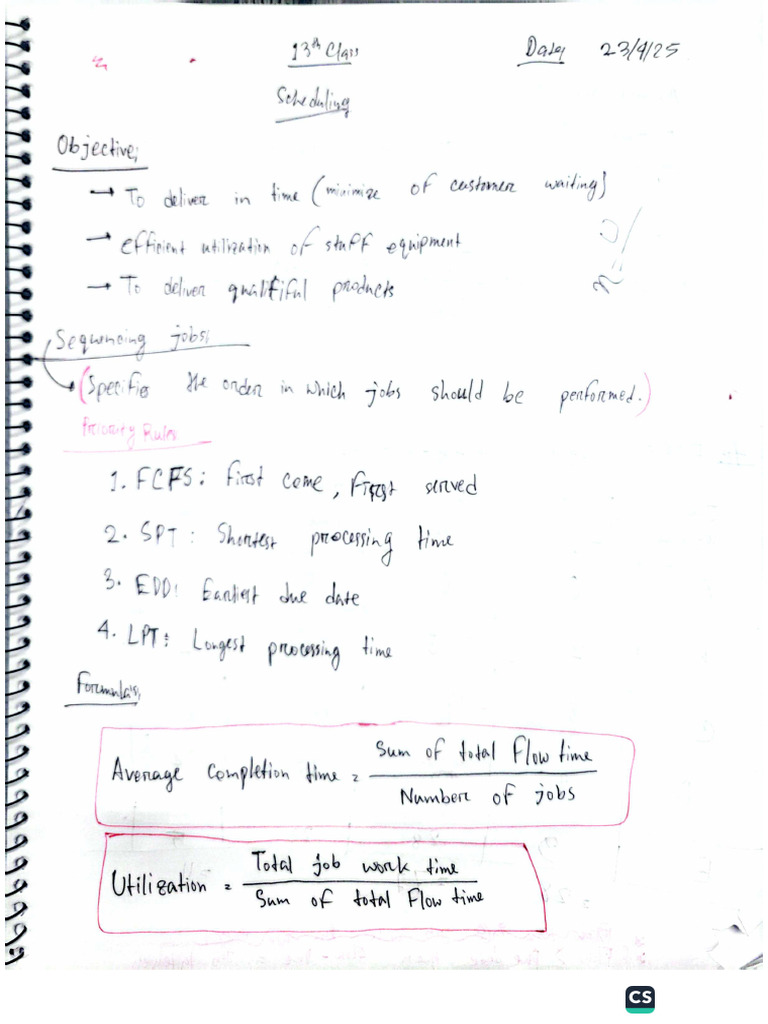 13th Class Date, 23/4/25
Scheduling
Objective;
→ To deliver in time (minimize of customer waiting)
→ efficient utilization of stuff equipment
→ To deliver qualitiful products
Sequencing jobs;
(Specifies the order in which jobs should be performed.)
Priority Rules
1. FCFS: First come, First served
2. SPT: Shortest processing time
3. EDD: Earliest due date
4. LPT: Longest processing time
Formula's,
Average completion time = Sum of total flow time / Number of jobs
Utilization = Total job work time / Sum of total flow time
CS